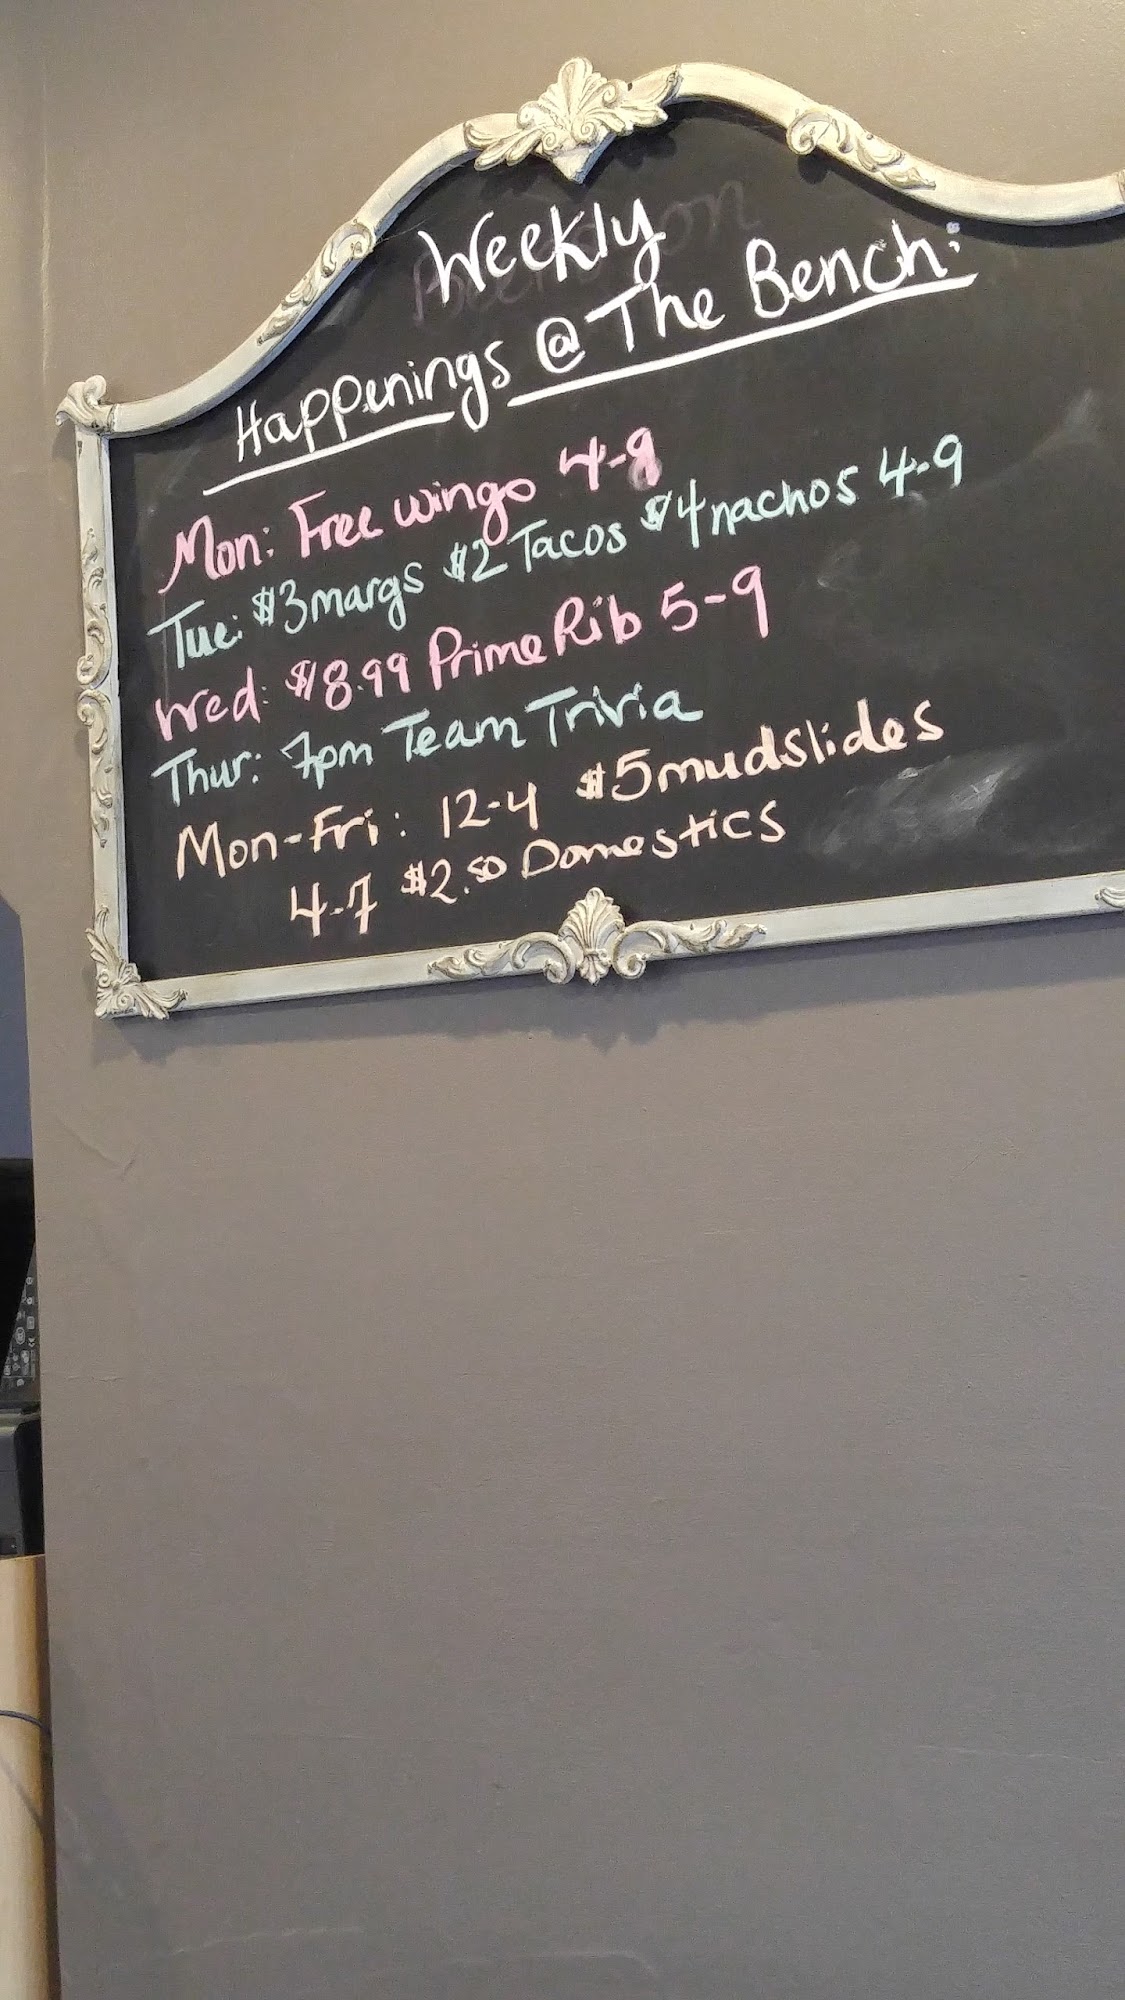 Weekly
Happenings @ The Bench:
Mon: Free wingo 4-9
Tue: $3 margs $2 Tacos $4 nachos 4-9
Wed: $18.99 Prime Rib 5-9
Thur: 7pm Team Trivia
Mon-Fri: 12-4 $5 mudslides
4-7 $2.50 Domestics